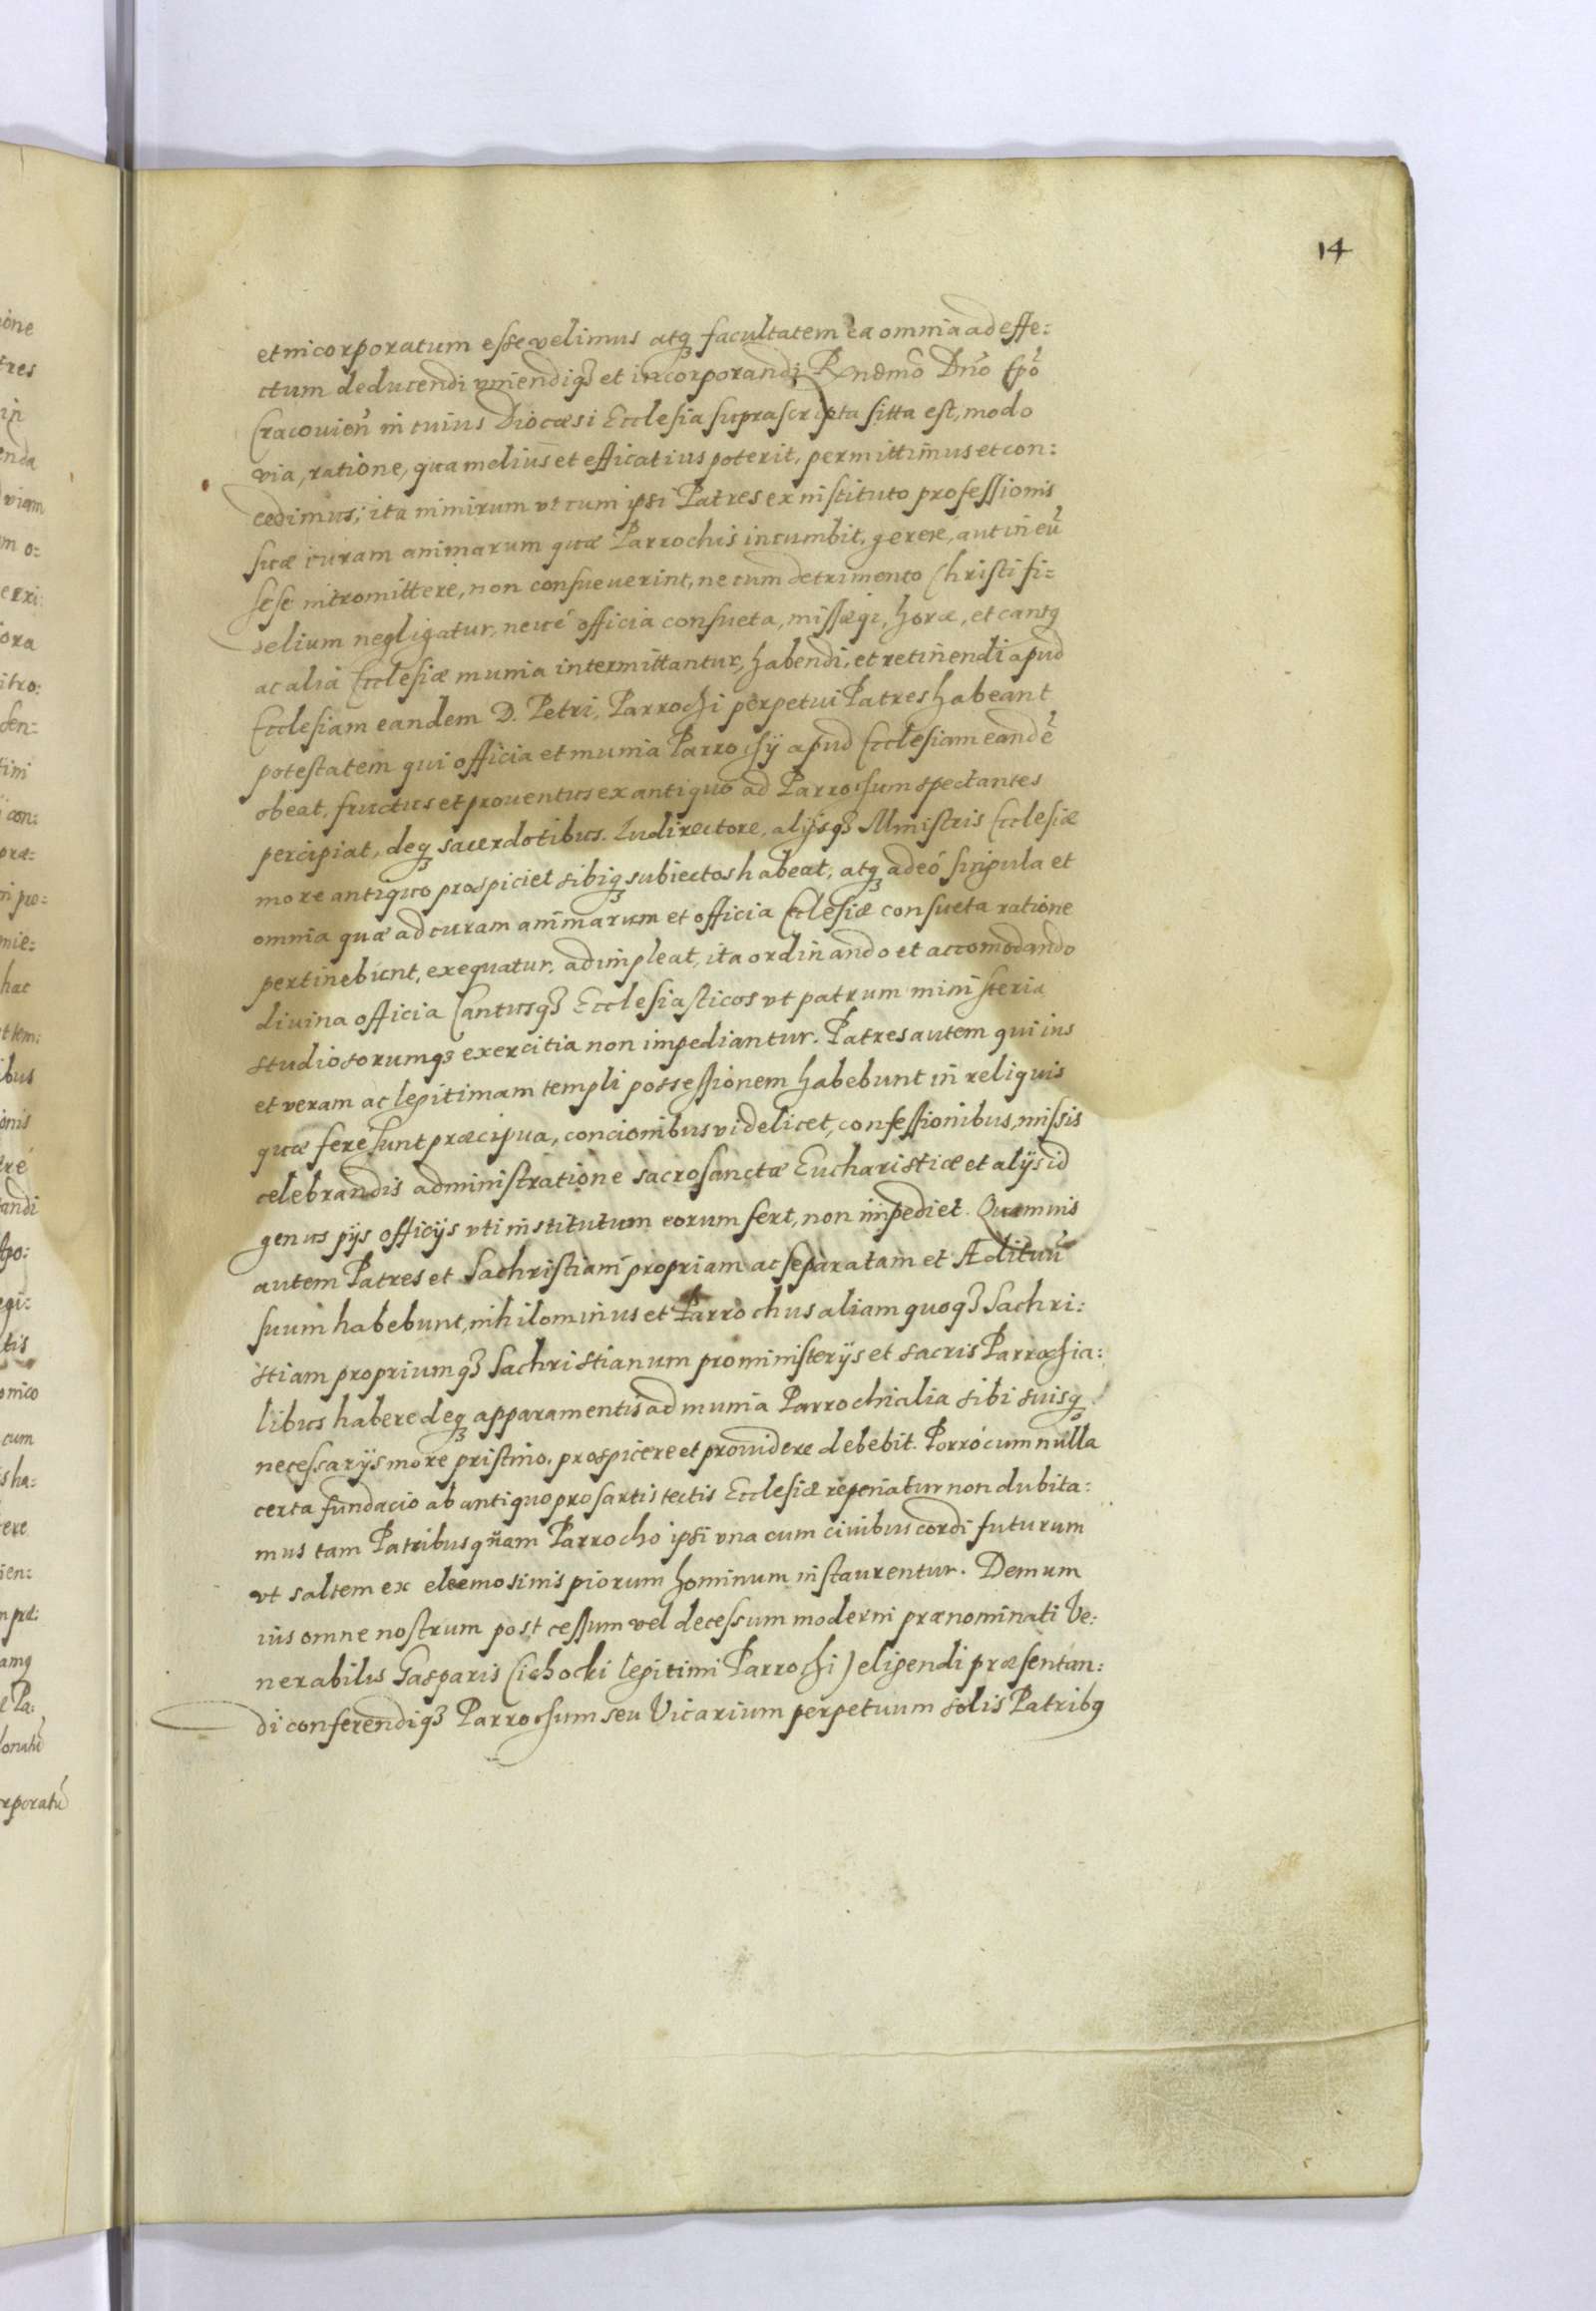 14
et incorporatum esse velimus atq facultatem ea omnia ad effe:
ctum deducendi vniendiq et incorporandi Rndmo Dno Epo
Cracouien in cuius Diocæsi Ecclesia suprascripta sitta est, modo
via, ratione, qua melius et efficatius poterit, permittimus et con:
cedimus; ita nimirum vt cum ipsi Patres ex instituto professionis
suæ curam animarum quæ Parrochis incumbit, gerere, aut in eu
sese intromittere, non consueuerint, ne cum detrimento Christi fi=
delium negligatur, neué officia consueta, missæq, horæ, et cantq
ac alia Ecclesiæ munia intermittantur, habendi, et retinendi apud
Ecclesiam eandem D. Petri, Parrochi perpetui Patres habeant
potestatem qui officia et munia Parrochij apud Ecclesiam eande
obeat, fructus et prouentus ex antiquo ad Parrochum spectantes
percipiat, deq sacerdotibus. Ludirectore, alijsq Ministris Ecclesiæ
more antiquo prospiciet sibiq subiectos habeat, atq adeó singula et
omnia quæ ad curam animarum et officia Ecclesiæ consueta ratione
pertinebunt, exequatur, adimpleat, ita ordinando et accomodando
diuina officia Cantusq Ecclesiasticos vt patrum ministeria
studiosorumq exercitia non impediantur. Patres autem qui ius
et veram ac legitimam templi possessionem habebunt in reliquis
quæ fere sunt præcipua, concionibus videlicet, confessionibus, missis
celebrandis administratione sacrosanctæ Eucharisticæ et alijs id
genus pijs officijs vti institutum eorum fert, non impediet. Quamuis
autem Patres et Sachristiam propriam ac separatam et Ædituu
suum habebunt, nihilominus et Parrochus aliam quoq Sachri:
stiam propriumq Sachristianum pro ministerijs et sacris Parrochia:
libus habere deq apparamentis ad munia Parrochialia sibi suisq
necessarijs more pristino, prospicere et prouidere debebit. Porró cum nulla
certa fundacio ab antiquo pro sartis tectis Ecclesiæ reperiatur non dubita:
mus tam Patribus quam Parrocho ipsi vna cum ciuibus cordi futurum
vt saltem ex eleemosinis piorum hominum instaurentur. Demum
ius omne nostrum post cessum vel decessum moderni prænominati Ve:
nerabilis Gasparis Cichocki legitimi Parrochi) eligendi præsentan:
di conferendiq Parrochum seu Vicarium perpetuum solis Patribq